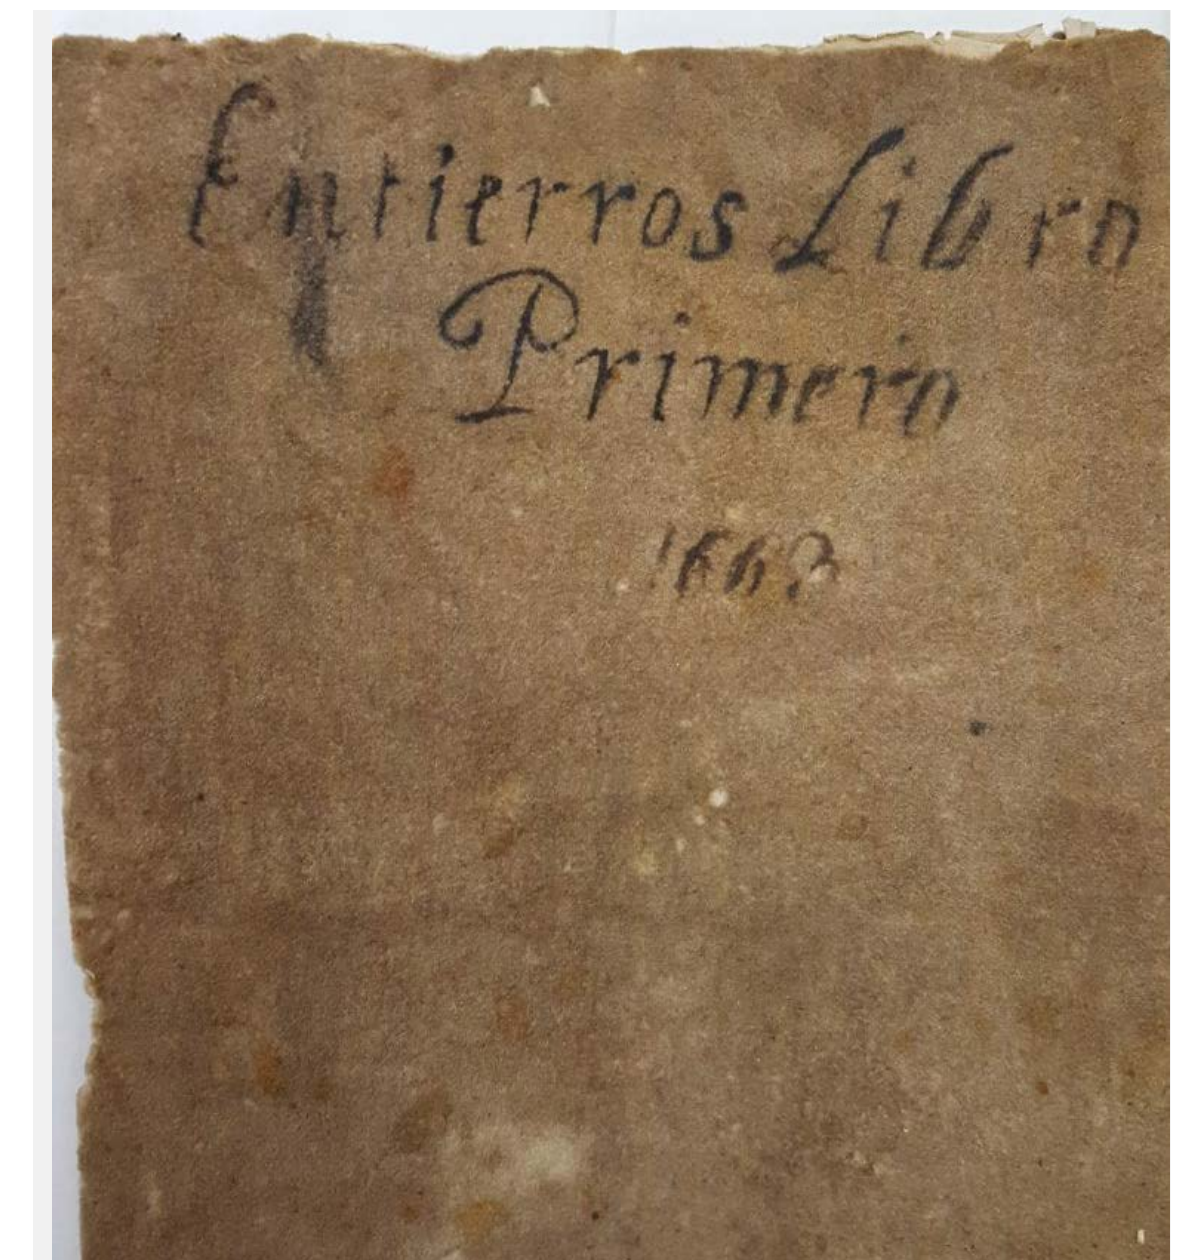 Entierros Libro
Primero
1663